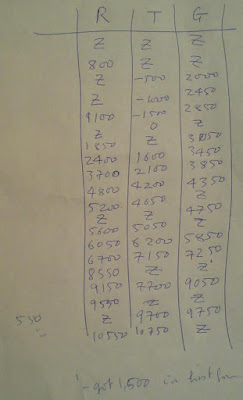 R T G
Z Z Z
800 Z Z
Z -500 2000
Z -1000 2450
1100 -1500 2850
Z 0 Z
1850 Z 3150
2400 1600 3450
3700 2100 3850
4800 4200 4350
5200 4650 Z
Z Z 4750
5600 5050 Z
6050 6200 5850
6700 7150 7250
8550 Z Z
9150 7700 9050
9550 Z Z
550 Z 9700 9750
10550 10750 Z
- got 1,500 in